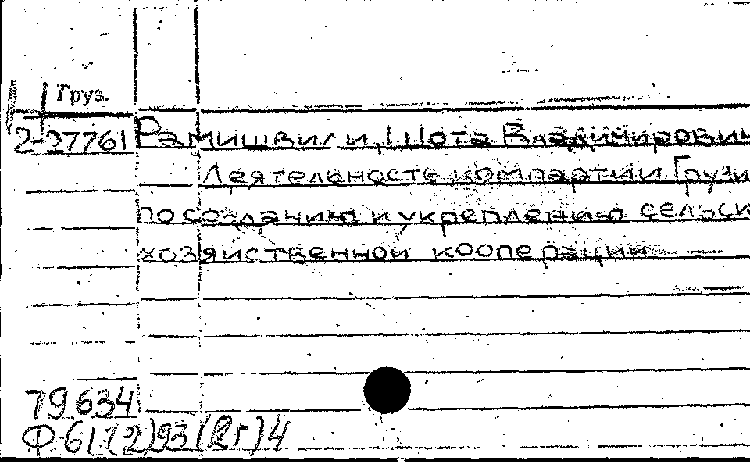 Груз.
2-27761 Рамишвили, Шота Владимирович
Деятельность компартии Грузи
по созданию и укреплению сельск
хозяйственной кооперации
79634
Ф-61(2)93(2г)4